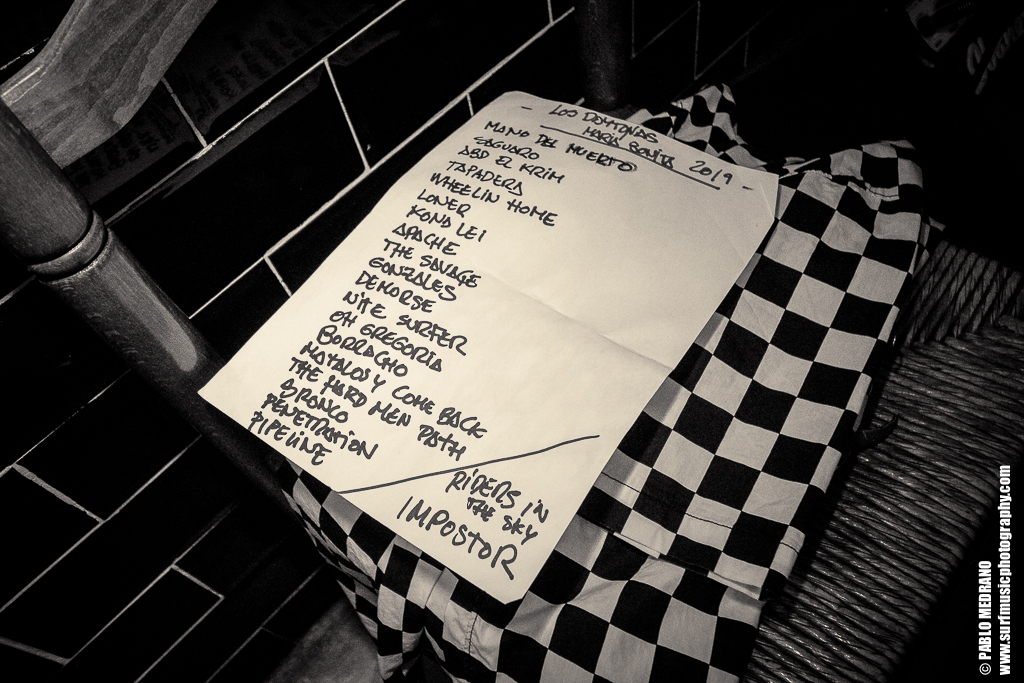 - LOS DAYTONAS
MARIA BONITA 2019 -
MANO DEL MUERTO
SAGUARO
ABD EL KRIM
TAPADERA
WHEELIN HOME
LONER
KONA LEI
APACHE
THE SAVAGE
GONZALES
DEMORSE
NITE SURFER
OH GREGORIA
BORRACHO
MATALOS Y COME BACK
THE HARD MEN PATH
BRONCO
PENETRATION
PIPELINE
RIDERS IN
THE SKY
IMPOSTOR
© PABLO MEDRANO
www.surfmusicphotography.com